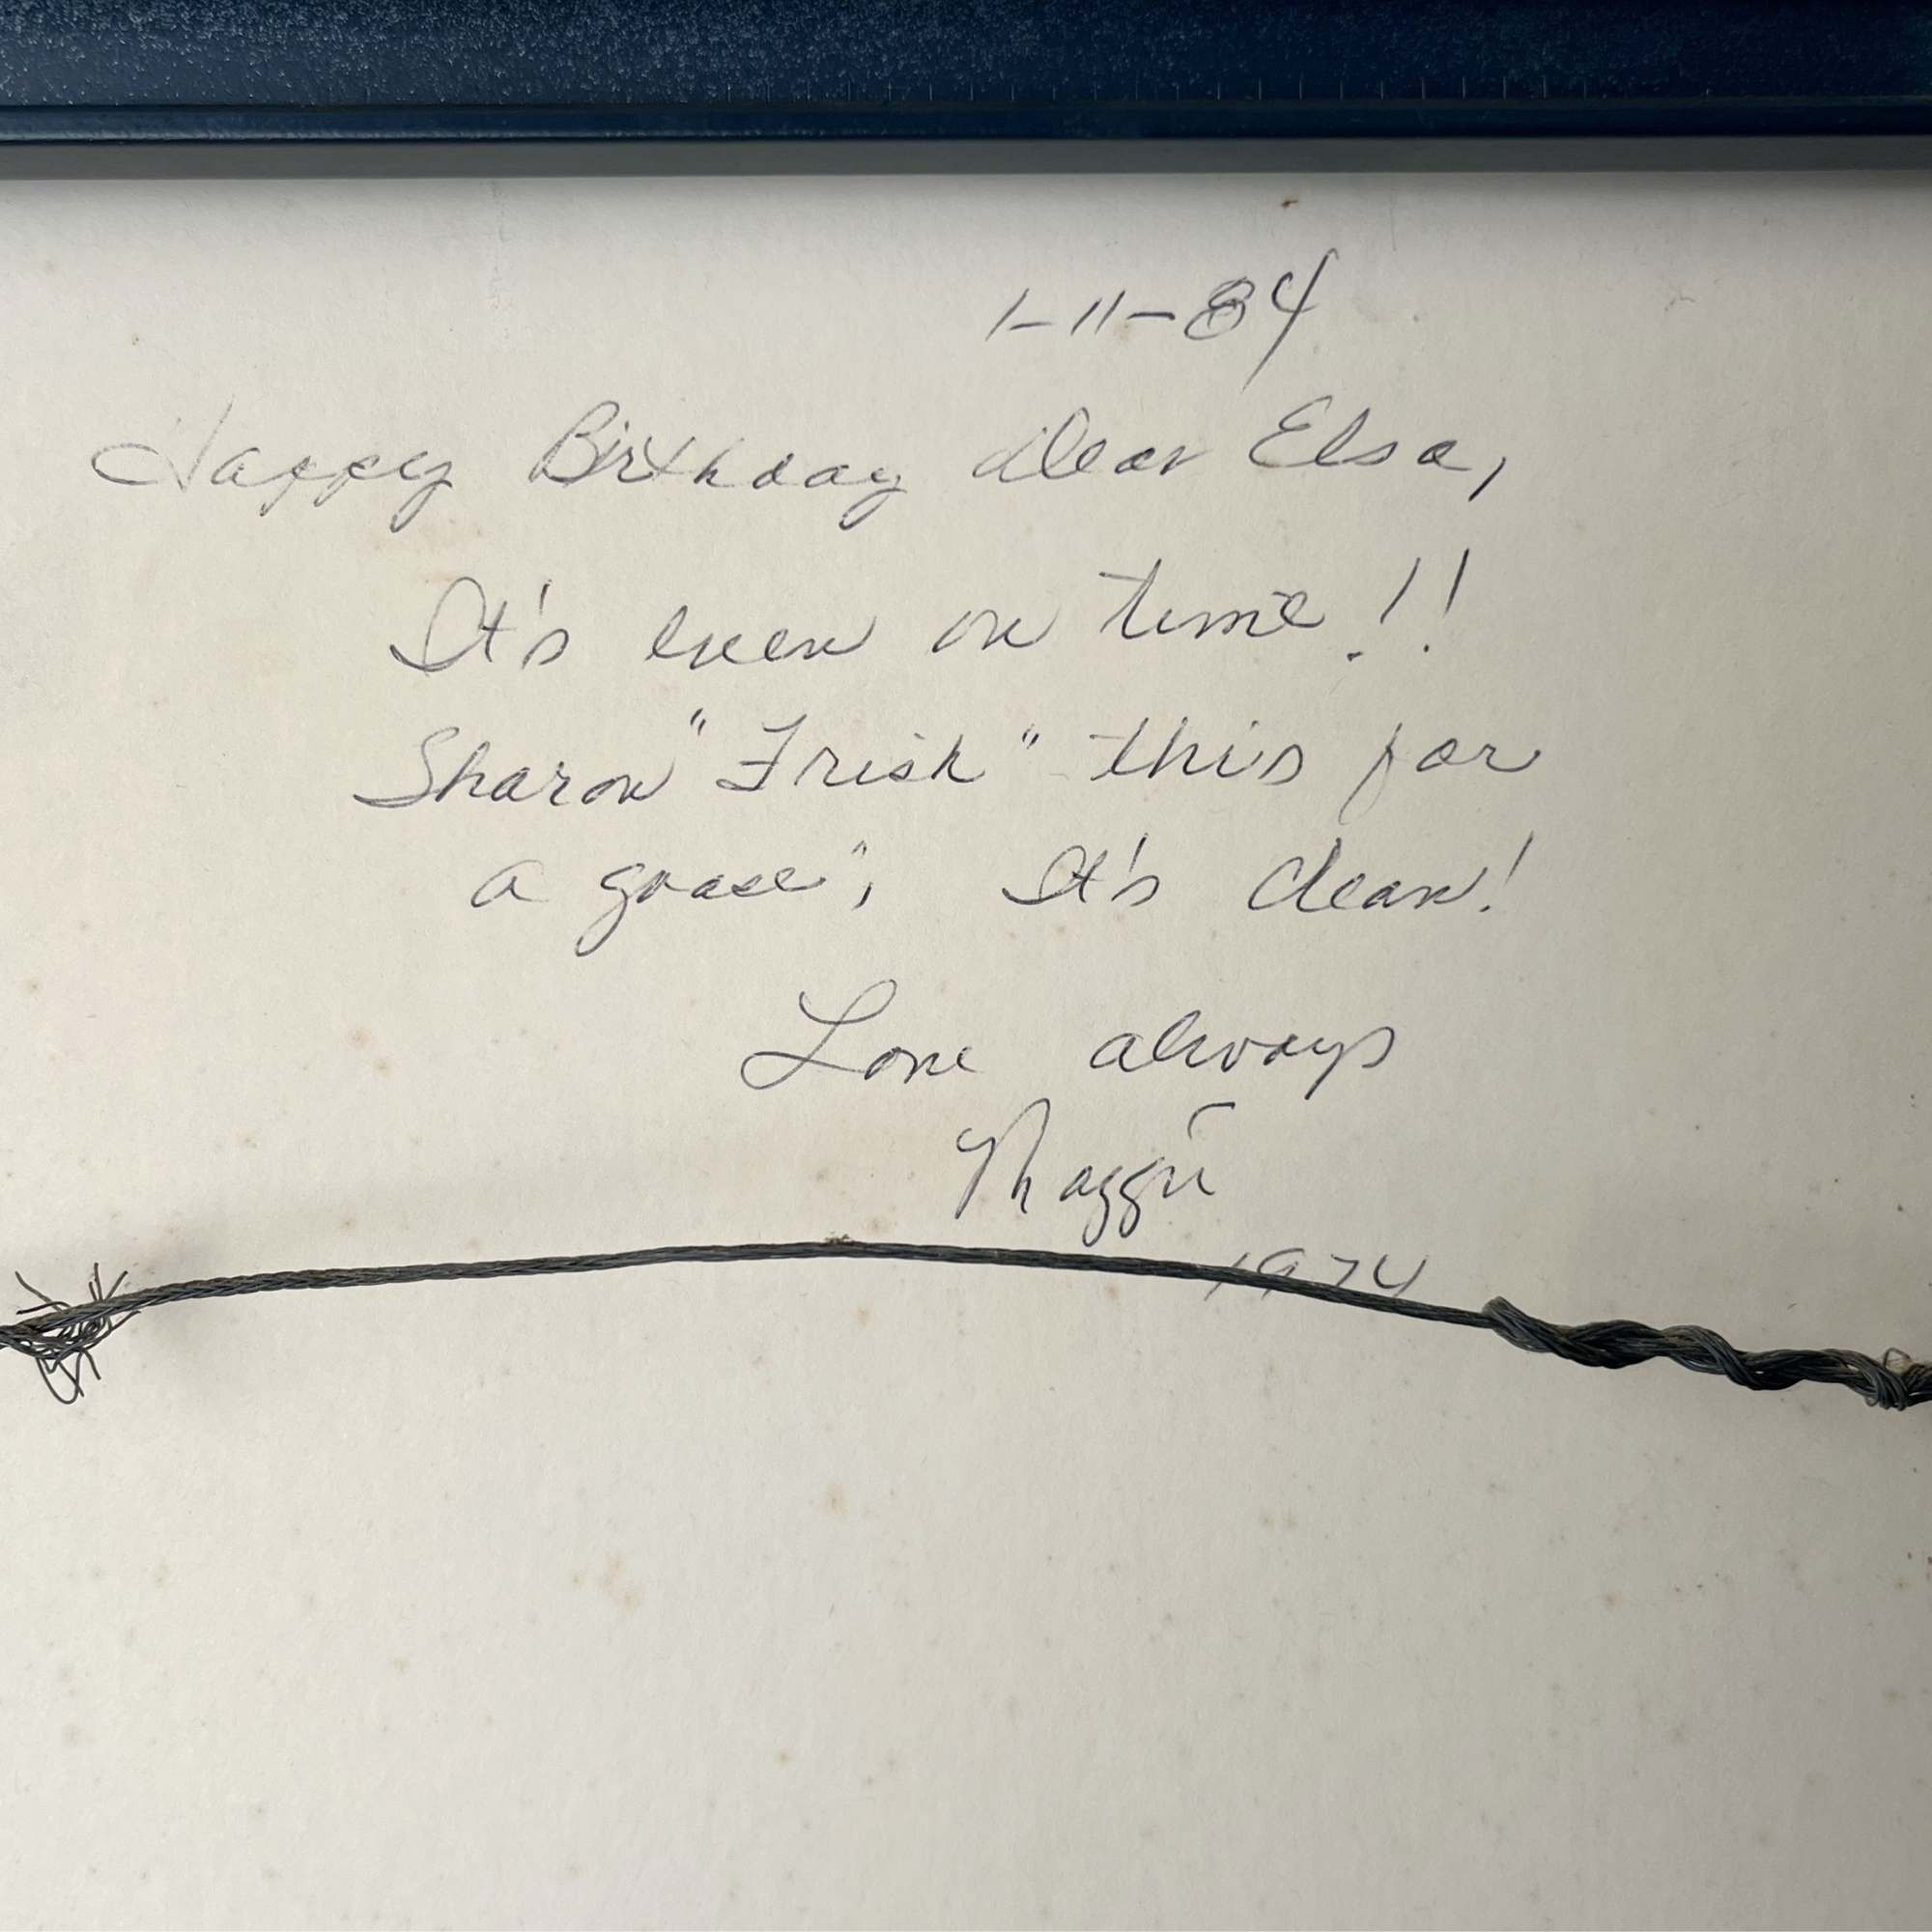 1-11-84
Happy Birthday dear Elsa,
It's even on time!!
Sharon "Frish" this for
a goose", It's clean!
Love always
Maggie
1974